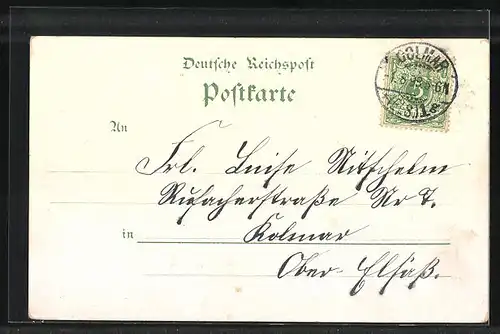 Deutsche Reichspost
Postkarte
COLMAR
5
An
Frl. Luise Nitschelm
Rufacherstraße Nr 7.
in
Kolmar
Ober-Elsaß.